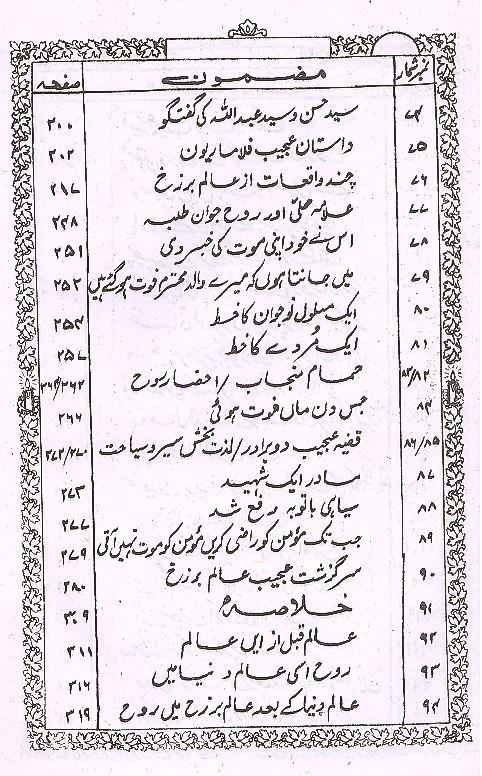 نمبر شمار مضمون صفحہ
۷۴ سید حسن و سید عبداللہ کی گفتگو ۲۰۰
۷۵ داستان عجیب فلاماریون ۲۰۲
۷۶ چند واقعات از عالم برزخ ۲۱۷
۷۷ علامہ حلیؒ اور روح جوان طلبہ ۲۴۸
۷۸ اس نے خود اپنی موت کی خبر دی ۲۵۱
۷۹ میں جانتا ہوں کہ میرے والد محترم فوت ہو گئے ہیں ۲۵۲
۸۰ ایک مسلول نوجوان کا خط ۲۵۴
۸۱ ایک مُردے کا خط ۲۵۷
۸۳/۸۲ حمام سنجاب / احضار روح ۲۶۴/۲۶۲
۸۴ جس دن ماں فوت ہوئی ۲۶۶
۸۶/۸۵ قضیہ عجیب دو برادر / لذت بخش سیر و سیاحت ۲۷۲/۲۷۰
۸۷ مادر ایک شہید ۲۷۳
۸۸ سیاہی با توبہ رفع شد ۲۷۷
۸۹ جب تک مؤمن کو راضی کریں مؤمن کو موت نہیں آتی ۲۷۹
۹۰ سرگزشت عجیب عالم برزخ ۲۸۰
۹۱ خلاصہ ۳۰۹
۹۲ عالم قبل از ایں عالم ۳۱۱
۹۳ روح اسی عالم دنیا میں ۳۱۶
۹۴ عالم دنیا کے بعد عالم برزخ میں روح ۳۱۹